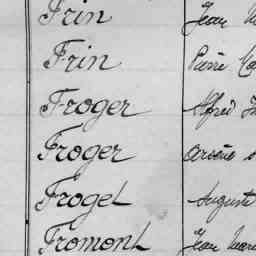 Frin Jean
Frin Pierre
Froger Alfred
Froger Arsène
Froget Auguste
Fromont Jean Marie